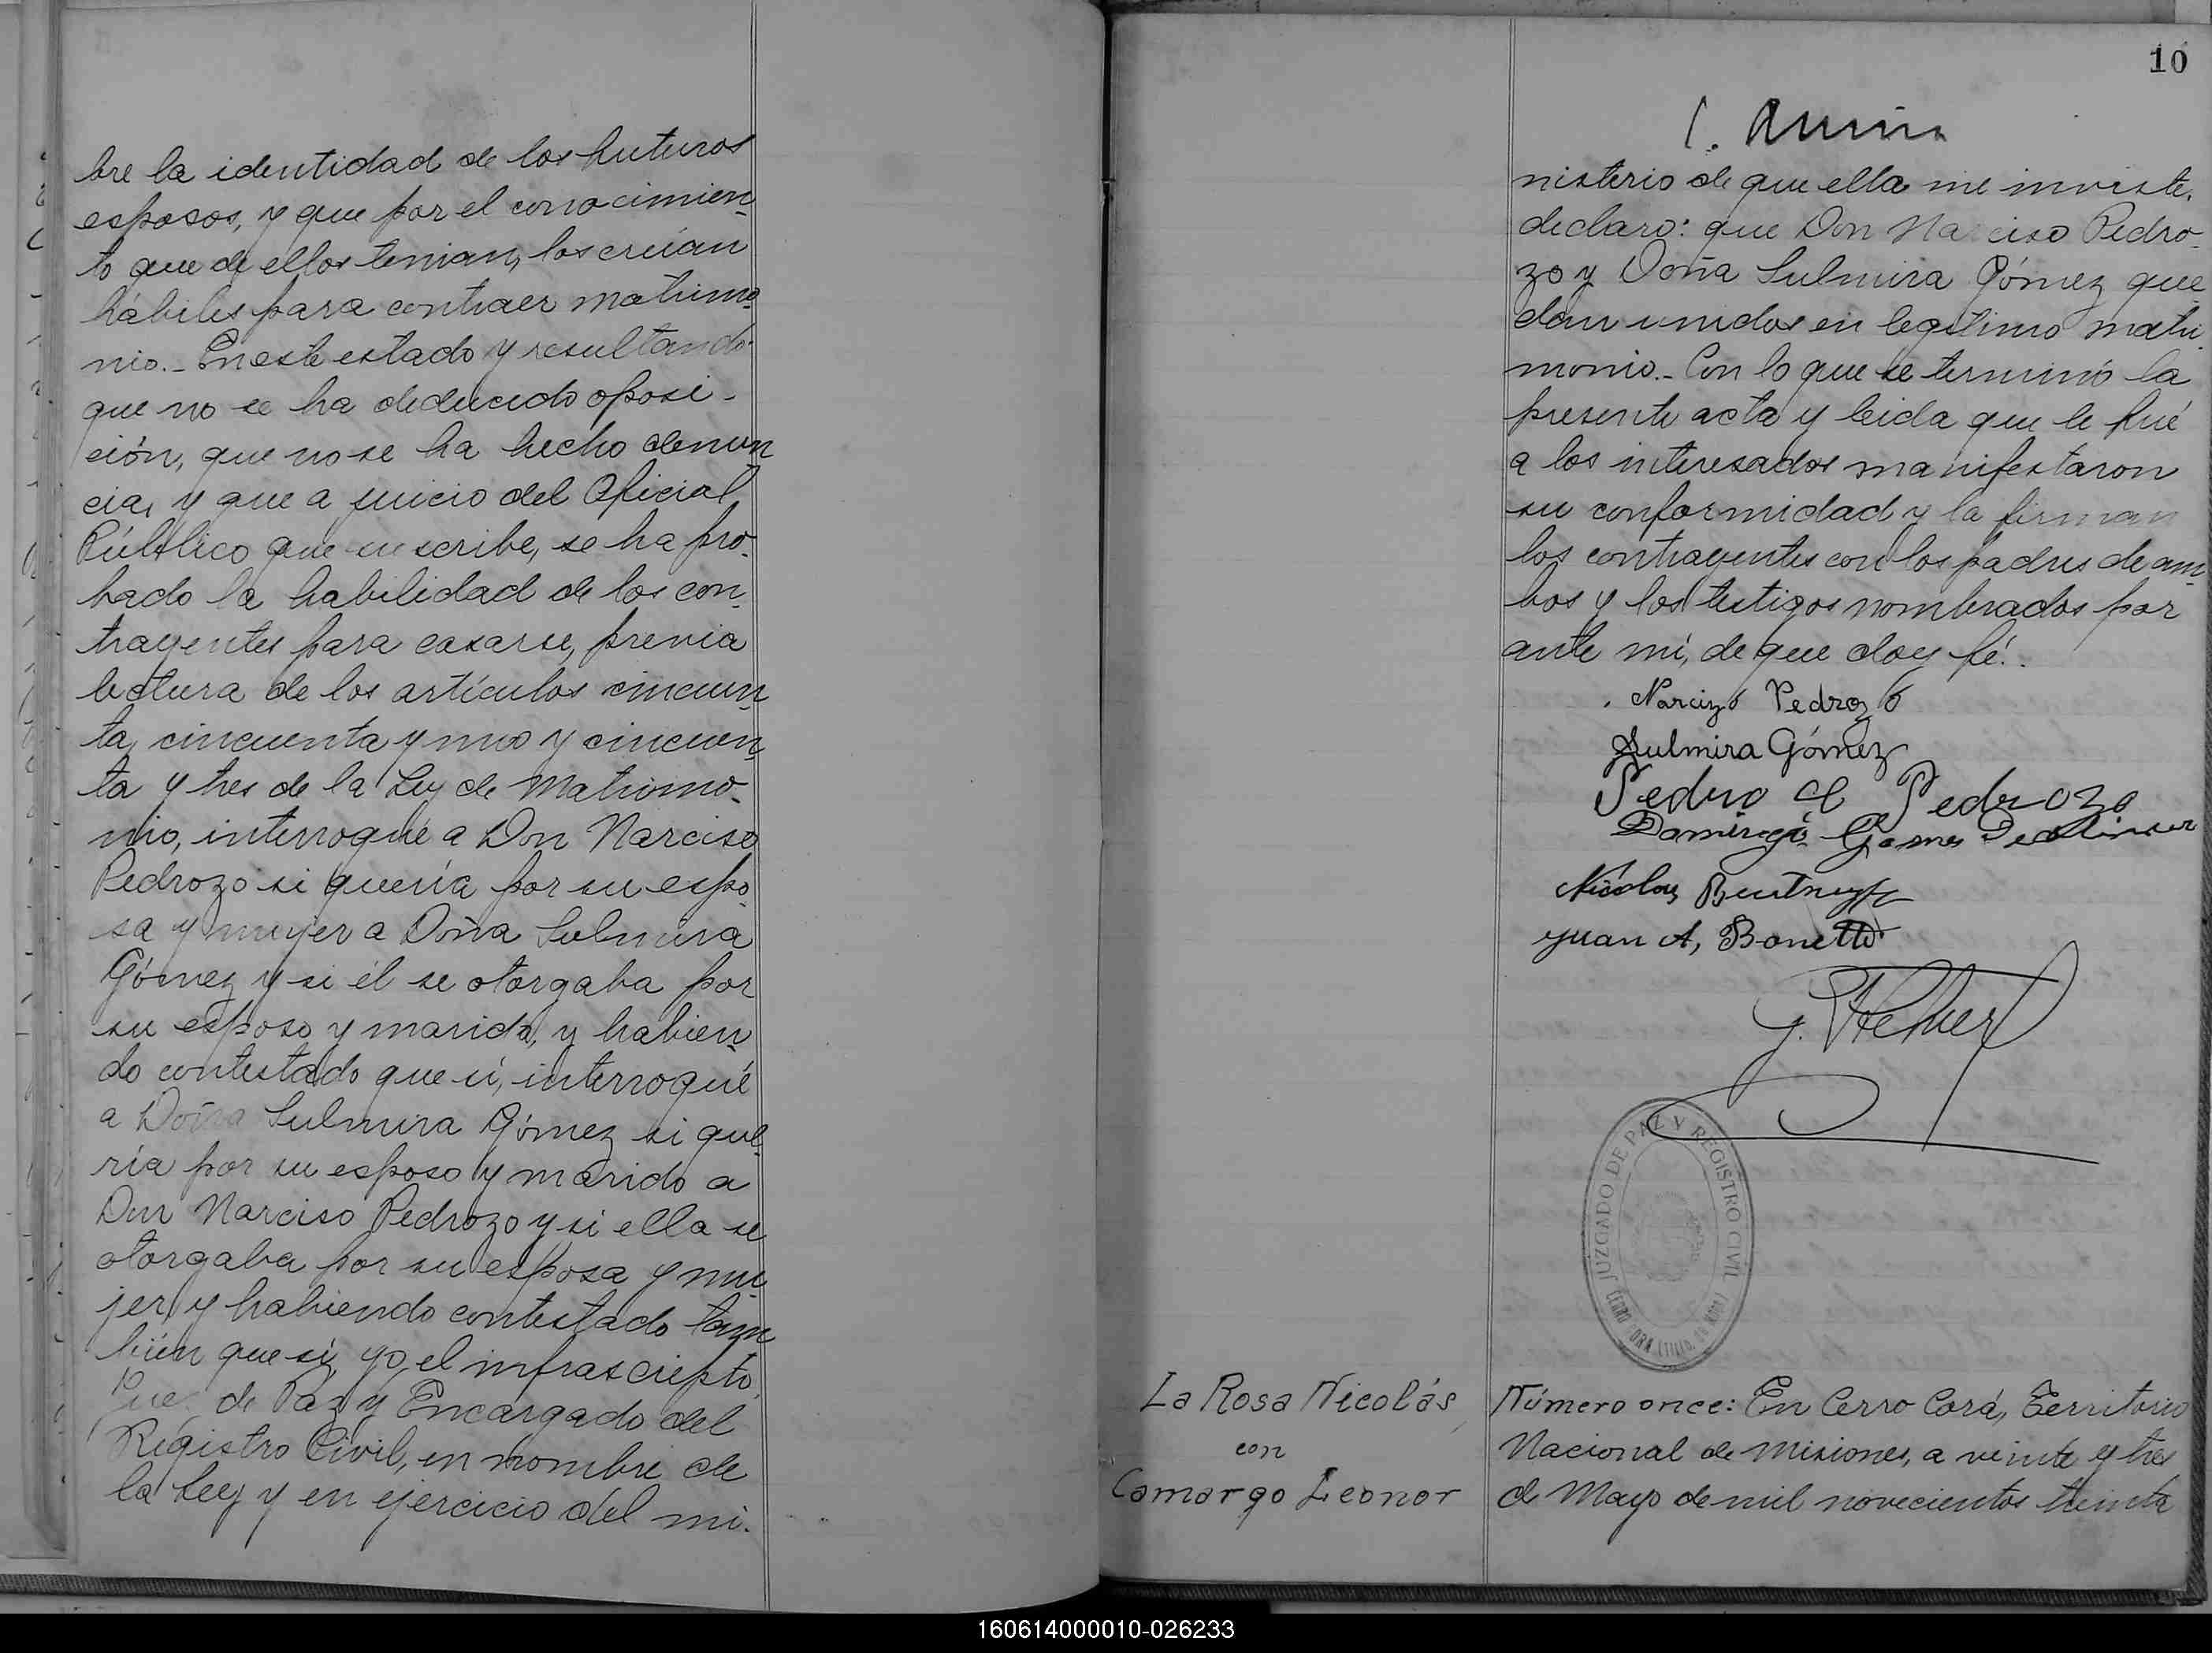 bre la identidad de los futuros
esposos, y que por el conocimien
to que de ellos tenian, los creían
hábiles para contraer matrimo
nio.- En este estado y resultando
que no se ha deducido oposi-
ción, que no se ha hecho denun
cia, y que a juicio del Oficial
Público que suscribe, se ha pro-
bado la habilidad de los con-
trayentes para casarse, previa
lectura de los artículos cincuen
ta, cincuenta y uno y cincuen
ta y tres de la Ley de Matrimo-
nio, interrogué a Don Narciso
Pedrozo si quería por su espo-
sa y mujer a Doña Sulmira
Gómez y si él se otorgaba por
su esposo y marido, y habien
do contestado que sí, interrogué
a Doña Sulmira Gómez si que
ría por su esposo y marido a
Don Narciso Pedrozo y si ella se
otorgaba por su esposa y mu
jer, y habiendo contestado tam
bién que sí, yo, el infrascripto,
Juez de Paz y Encargado del
Registro Civil, en nombre de
la Ley y en ejercicio del mi-
10
nisterio de que ella me inviste,
declaro: que Don Narciso Pedro-
zo y Doña Sulmira Gómez que
dan unidos en legítimo matri-
monio.- Con lo que se terminó la
presente acta y leida que le fué
a los interesados manifestaron
su conformidad y la firman
los contrayentes con los padres de am
bos y los testigos nombrados por
ante mí, de que doy fé.
Narcizó Pedrozó
Sulmira Gómez
Pedro Pedrozo
Domingo Gomes
Nicolas
Juan A, Bonetti
JUZGADO DE PAZ Y REGISTRO CIVIL
CERRO CORÁ
La Rosa Nicolás
con
Camargo Leonor
Número once: En Cerro Corá, Territorio
Nacional de Misiones, a veinte y tres
de Mayo de mil novecientos treinta
160614000010-026233